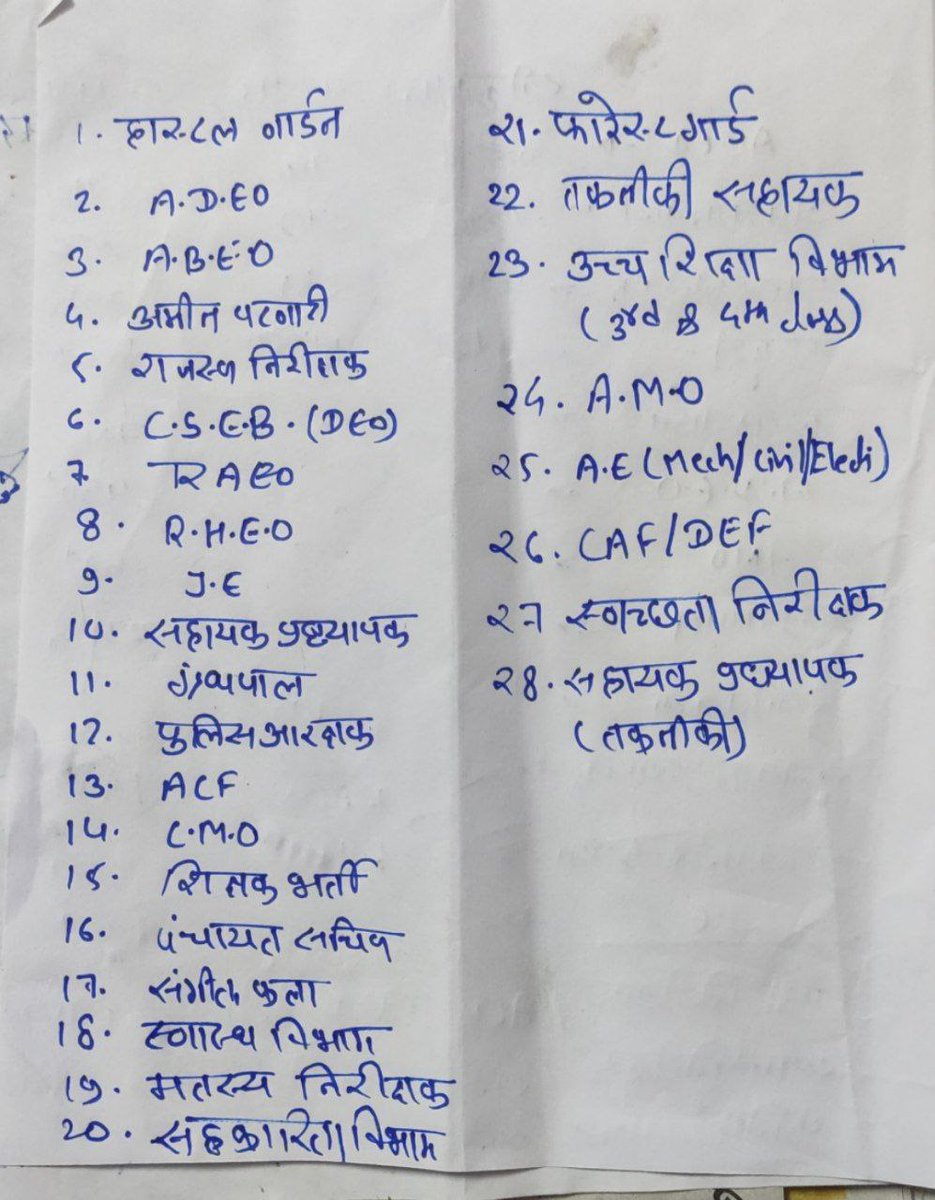 1. हास्टल वार्डन
2. A.D.EO
3. A.B.E.O
4. अमीन पटवारी
5. राजस्व निरीक्षक
6. C.S.E.B. (DEO)
7 RAEO
8. R.H.E.O
9. J.E
10. सहायक प्रध्यापक
11. ग्रंथपाल
12. पुलिस आरक्षक
13. ACF
14. C.M.O
15. शिक्षक भर्ती
16. पंचायत सचिव
17. संगीत कला
18. स्वास्थ विभाग
19. मतस्य निरीक्षक
20. सहकारिता विभाग
21. फारेस्ट गार्ड
22. तकनीकी सहायक
23. उच्च शिक्षा विभाग
(3rd & 4th class)
24. A.M.O
25. A.E (Mech/Civil/Elect)
26. CAF/DEF
27 स्वच्छता निरीक्षक
28. सहायक प्रध्यापक
(तकनीकी)